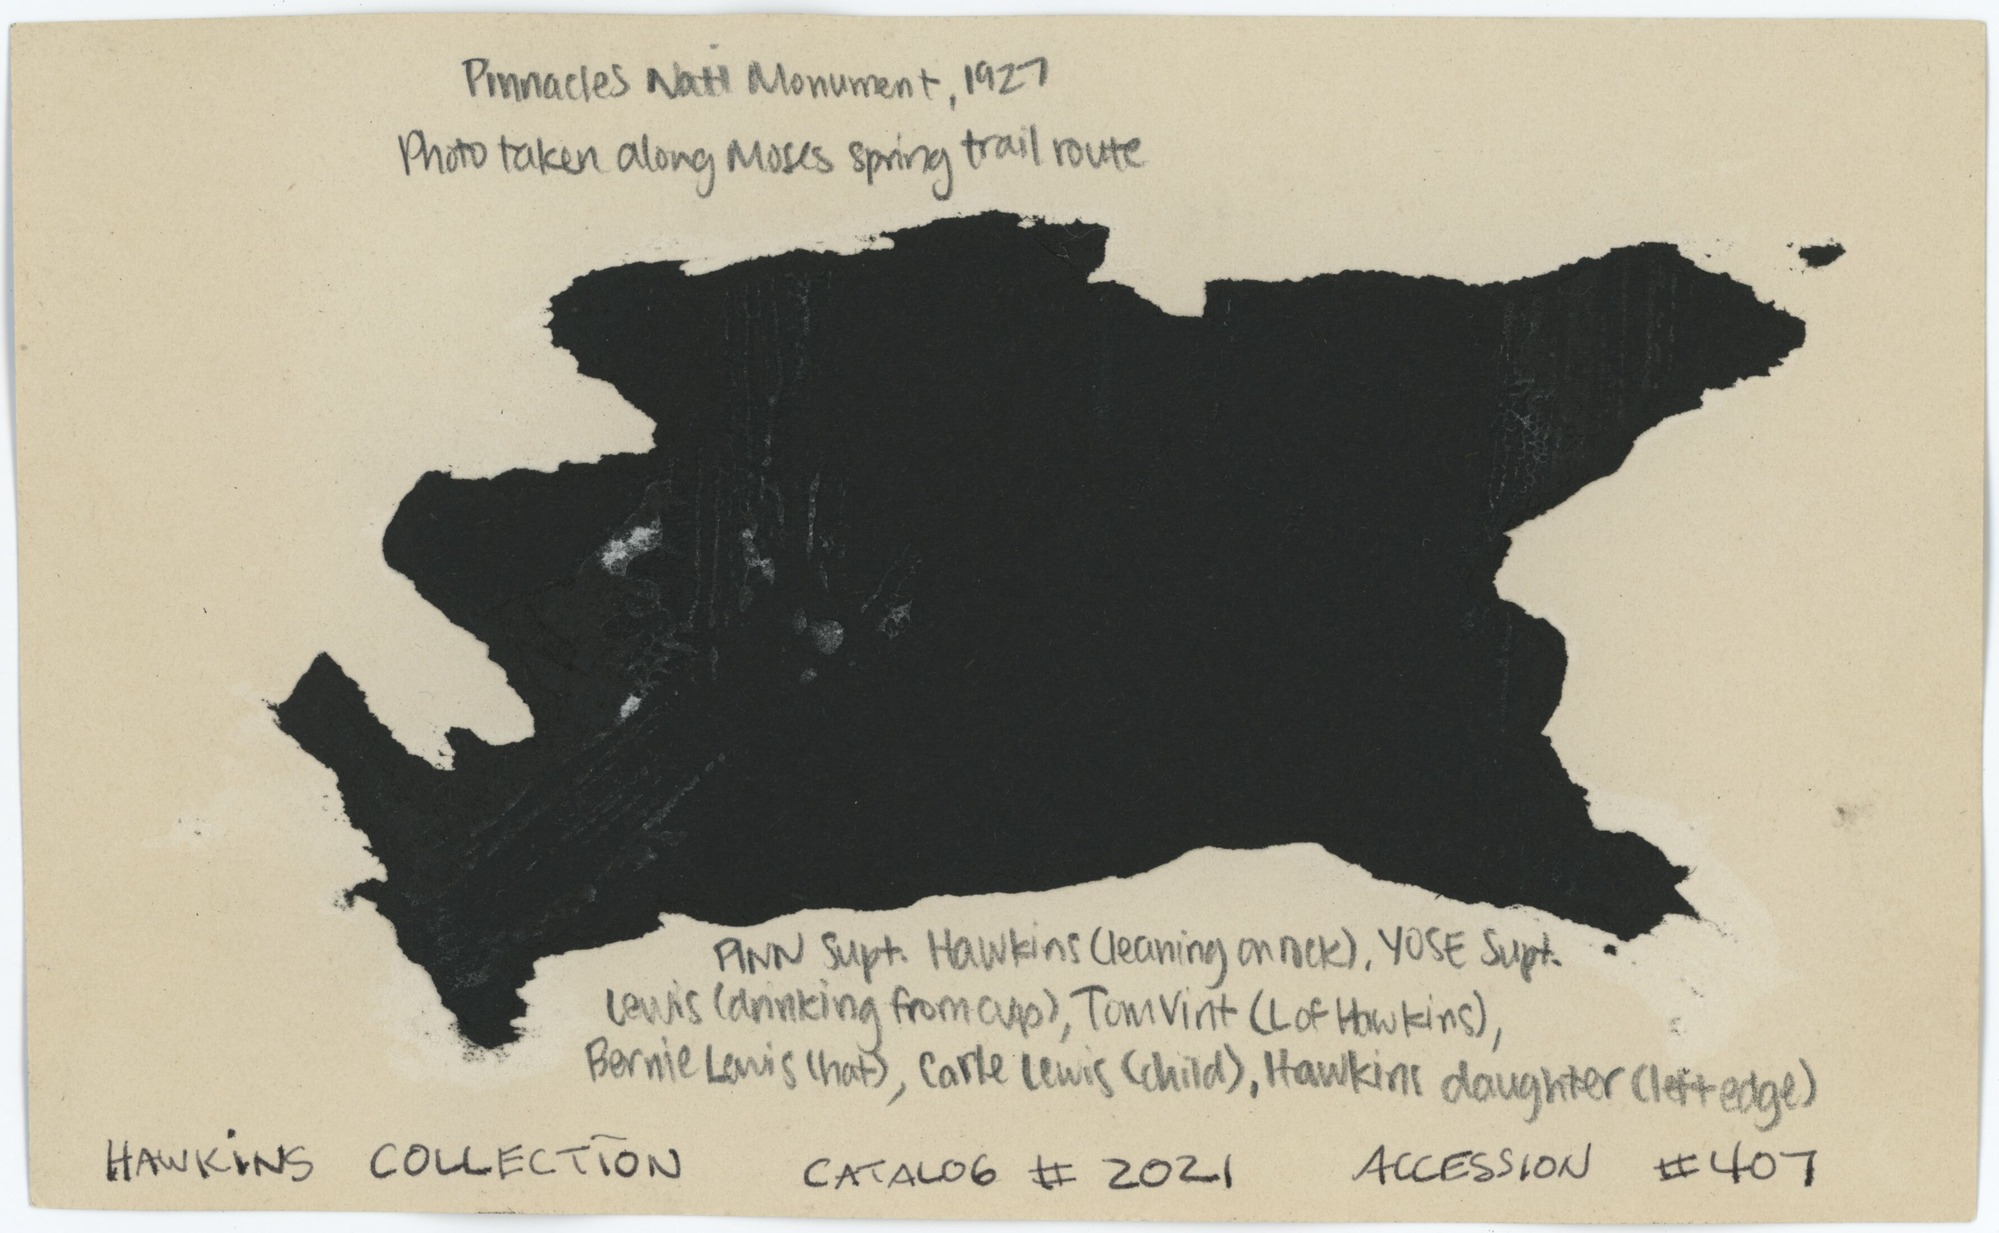 Pinnacles Natl Monument, 1927
Photo taken along Moses spring trail route
PINN Supt. Hawkins (leaning on rock), YOSE Supt.
Lewis (drinking from cup), Tom Vint (L of Hawkins),
Bernie Lewis (hat), Carle Lewis (child), Hawkins daughter (left edge)
HAWKINS COLLECTION CATALOG # 2021 ACCESSION #407